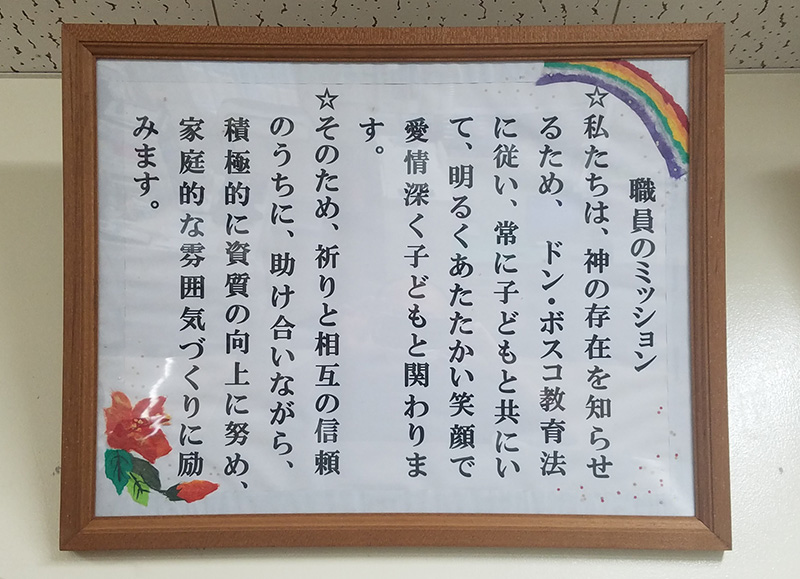 職員のミッション
☆私たちは、神の存在を知らせ
るため、ドン・ボスコ教育法
に従い、常に子どもと共にい
て、明るくあたたかい笑顔で
愛情深く子どもと関わりま
す。
☆そのため、祈りと相互の信頼
のうちに、助け合いながら、
積極的に資質の向上に努め、
家庭的な雰囲気づくりに励
みます。